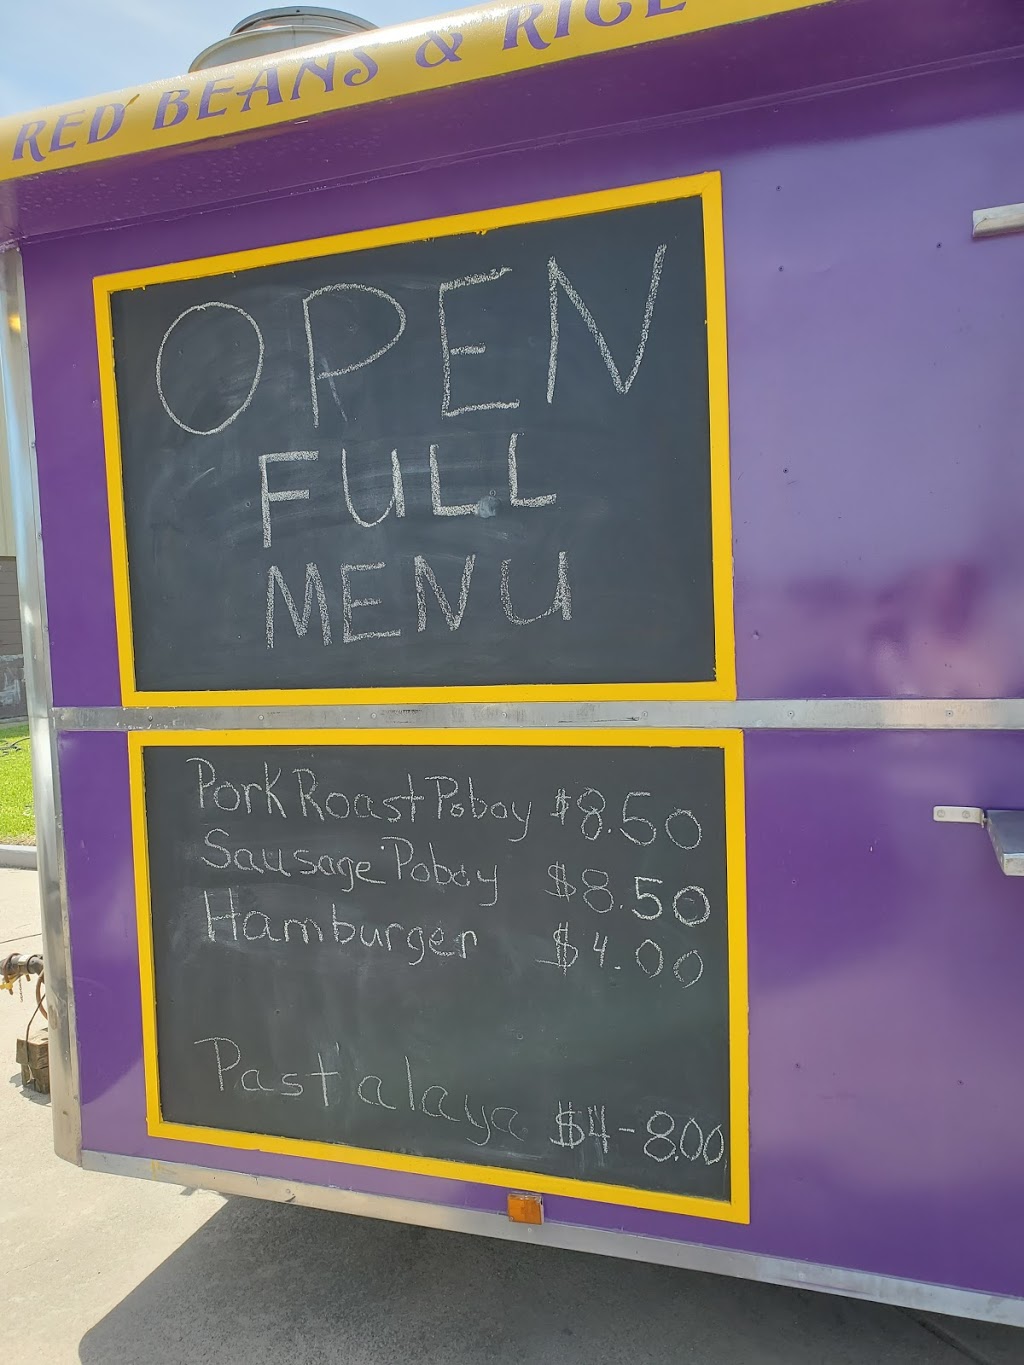 RED BEANS & RICE
OPEN
FULL
MENU
Pork Roast Poboy $8.50
Sausage Poboy $8.50
Hamburger $4.00
Pastalaya $4-8.00